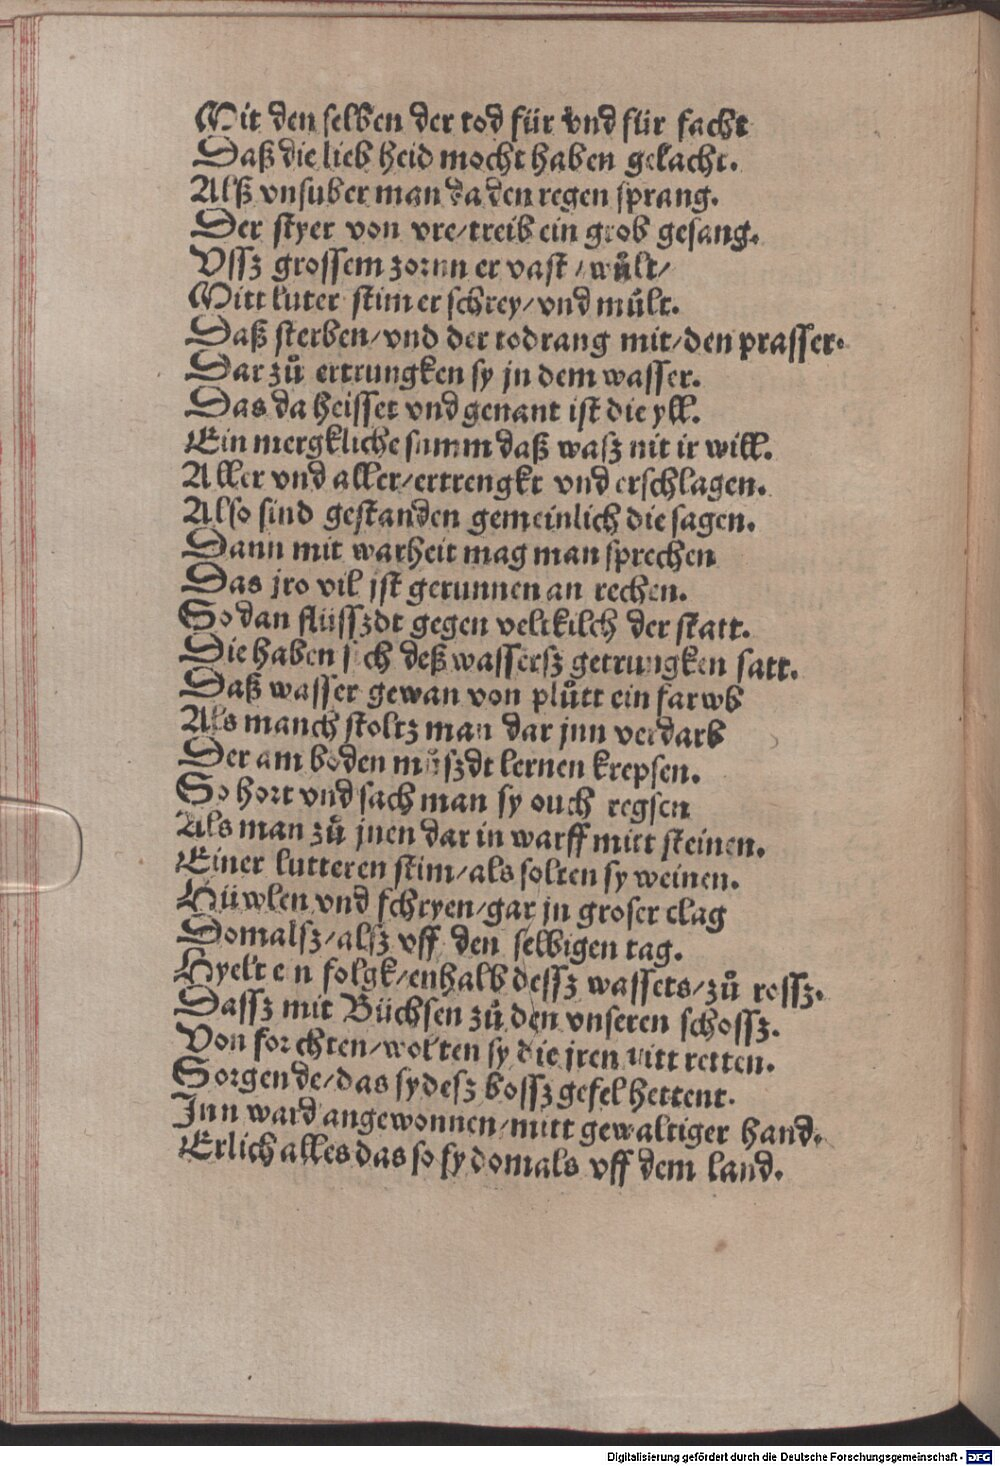 Mit den selben der tod für vnd für facht
Daß die lieb heid mocht haben gelacht.
Alß vnsuber man da den regen sprang.
Der styer von vre/treib ein grob gesang.
Vssz grossem zornn er vast / wůlt/
Mitt luter stim er schrey/vnd můlt.
Daß sterben/vnd der tod rang mit/den prasser.
Dar zů ertrungken sy jn dem wasser.
Das da heisset vnd genant ist die yll.
Ein mergkliche summ daß wasz nit ir will.
Aller vnd aller/ertrengkt vnd erschlagen.
Also sind gestanden gemeinlich die sagen.
Dann mit warheit mag man sprechen
Das jro vil jst gerunnen an rechen.
So dan flüsszdt gegen veltkilch der statt.
Die haben sich deß wassersz getrungken satt.
Daß wasser gewan von plůtt ein farwb
Als manch stoltz man dar jnn verdarb
Der am boden můszdt lernen krepsen.
So hort vnd sach man sy ouch regsen
Als man zů jnen dar in warff mitt steinen.
Einer lutteren stim/als solten sy weinen.
Hüwlen vnd schryen/gar jn groser clag
Domalsz/alsz vff den selbigen tag.
Hyelt e n folgk/enhalb dessz wassets/zů rossz.
Dassz mit Büchsen zů den vnseren schossz.
Von forchten/wolten sy die jren nitt retten.
Sorgende/das sy desz bossz gefel hettent.
Jnn ward angewonnen/mitt gewaltiger hand.
Erlich alles das so sy domals vff dem land.
Digitalisierung gefördert durch die Deutsche Forschungsgemeinschaft - DFG